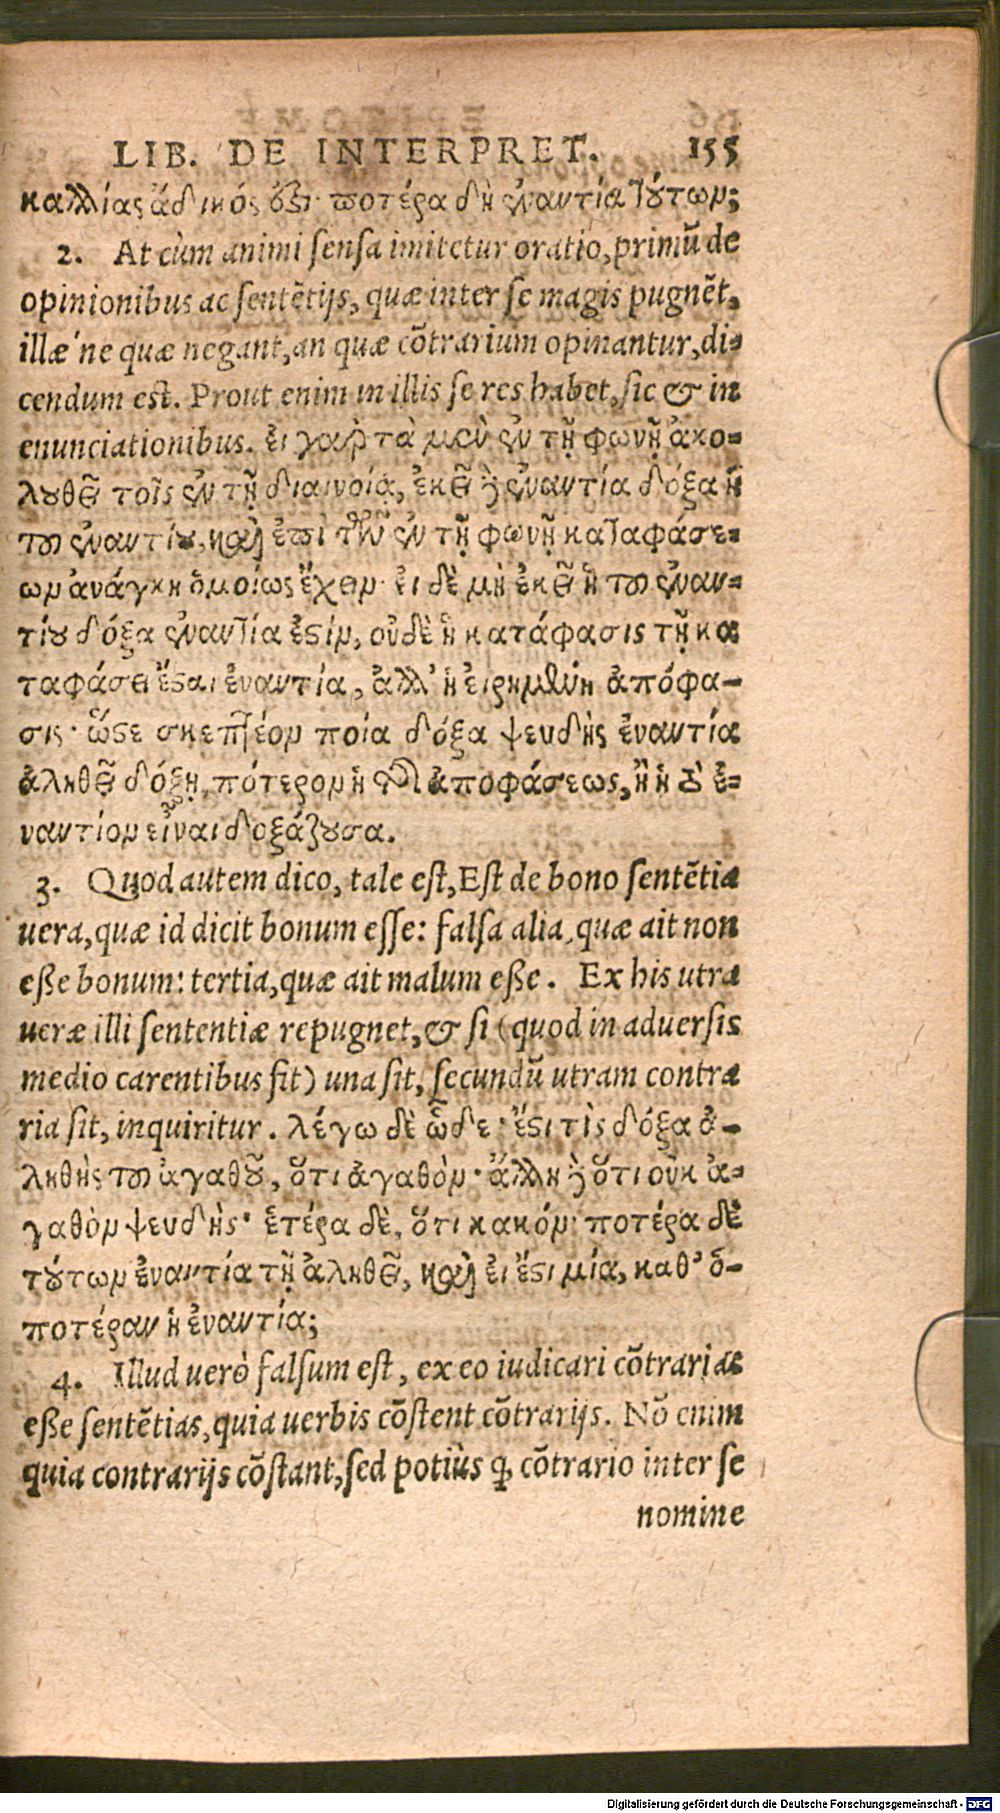 LIB. DE INTERPRET. 155
καλλίας ἄδικός ὅξι· ποτέρα δὴ ἐναντία τούτων;
2. At cùm animi sensa imitetur oratio, primũ de
opinionibus ac sentẽtijs, quæ inter se magis pugnẽt,
illæ'ne quæ negant, an quæ cõtrarium opinantur, di-
cendum est. Prout enim in illis se res habet, sic & in
enunciationibus. εἰ γὰρ τὰ μὲν ἐν τῇ φωνῇ ἀκο-
λουθεῖ τοῖς ἐν τῇ διανοίᾳ, ἐκεῖ δὲ ἐναντία δόξα ἡ
τοῦ ἐναντίου, καὶ ἐπὶ τῶν ἐν τῇ φωνῇ καταφάσε-
ων ἀνάγκη ὁμοίως ἔχειν· εἰ δὲ μὴ ἐκεῖ ἡ τοῦ ἐναν-
τίου δόξα ἐναντία ἐστίν, οὐδὲ ἡ κατάφασις τῇ κα
ταφάσει ἔσται ἐναντία, ἀλλ' ἡ εἰρημένη ἀπόφα-
σις· ὥστε σκεπτέον ποία δόξα ψευδὴς ἐναντία
ἀληθεῖ δόξῃ, πότερον ἡ τῆς ἀποφάσεως, ἢ ἡ τὸ ἐ-
ναντίον εἶναι δοξάζουσα.
3. Quod autem dico, tale est, Est de bono sentẽtia
uera, quæ id dicit bonum esse: falsa alia, quæ ait non
eße bonum: tertia, quæ ait malum eße. Ex his utra
ueræ illi sententiæ repugnet, & si (quod in aduersis
medio carentibus fit) una sit, secundũ utram contra
ria sit, inquiritur. λέγω δὲ ὧδε· ἔστι τὶς δόξα ἀ-
ληθὴς τοῦ ἀγαθοῦ, ὅτι ἀγαθὸν· ἄλλη δὲ ὅτι οὐκ ἀ-
γαθὸν ψευδὴς· ἑτέρα δὲ, ὅτι κακόν· ποτέρα δὲ
τούτων ἐναντία τῇ ἀληθεῖ, καὶ εἰ ἔστι μία, καθ' ὁ-
ποτέραν ἡ ἐναντία;
4. Illud uerò falsum est, ex eo iudicari cõtrarias
eße sentẽtias, quia uerbis cõstent cõtrarijs. Nõ enim
quia contrarijs cõstant, sed potiùs ꝙ cõtrario inter se
nomine
Digitalisierung gefördert durch die Deutsche Forschungsgemeinschaft - DFG